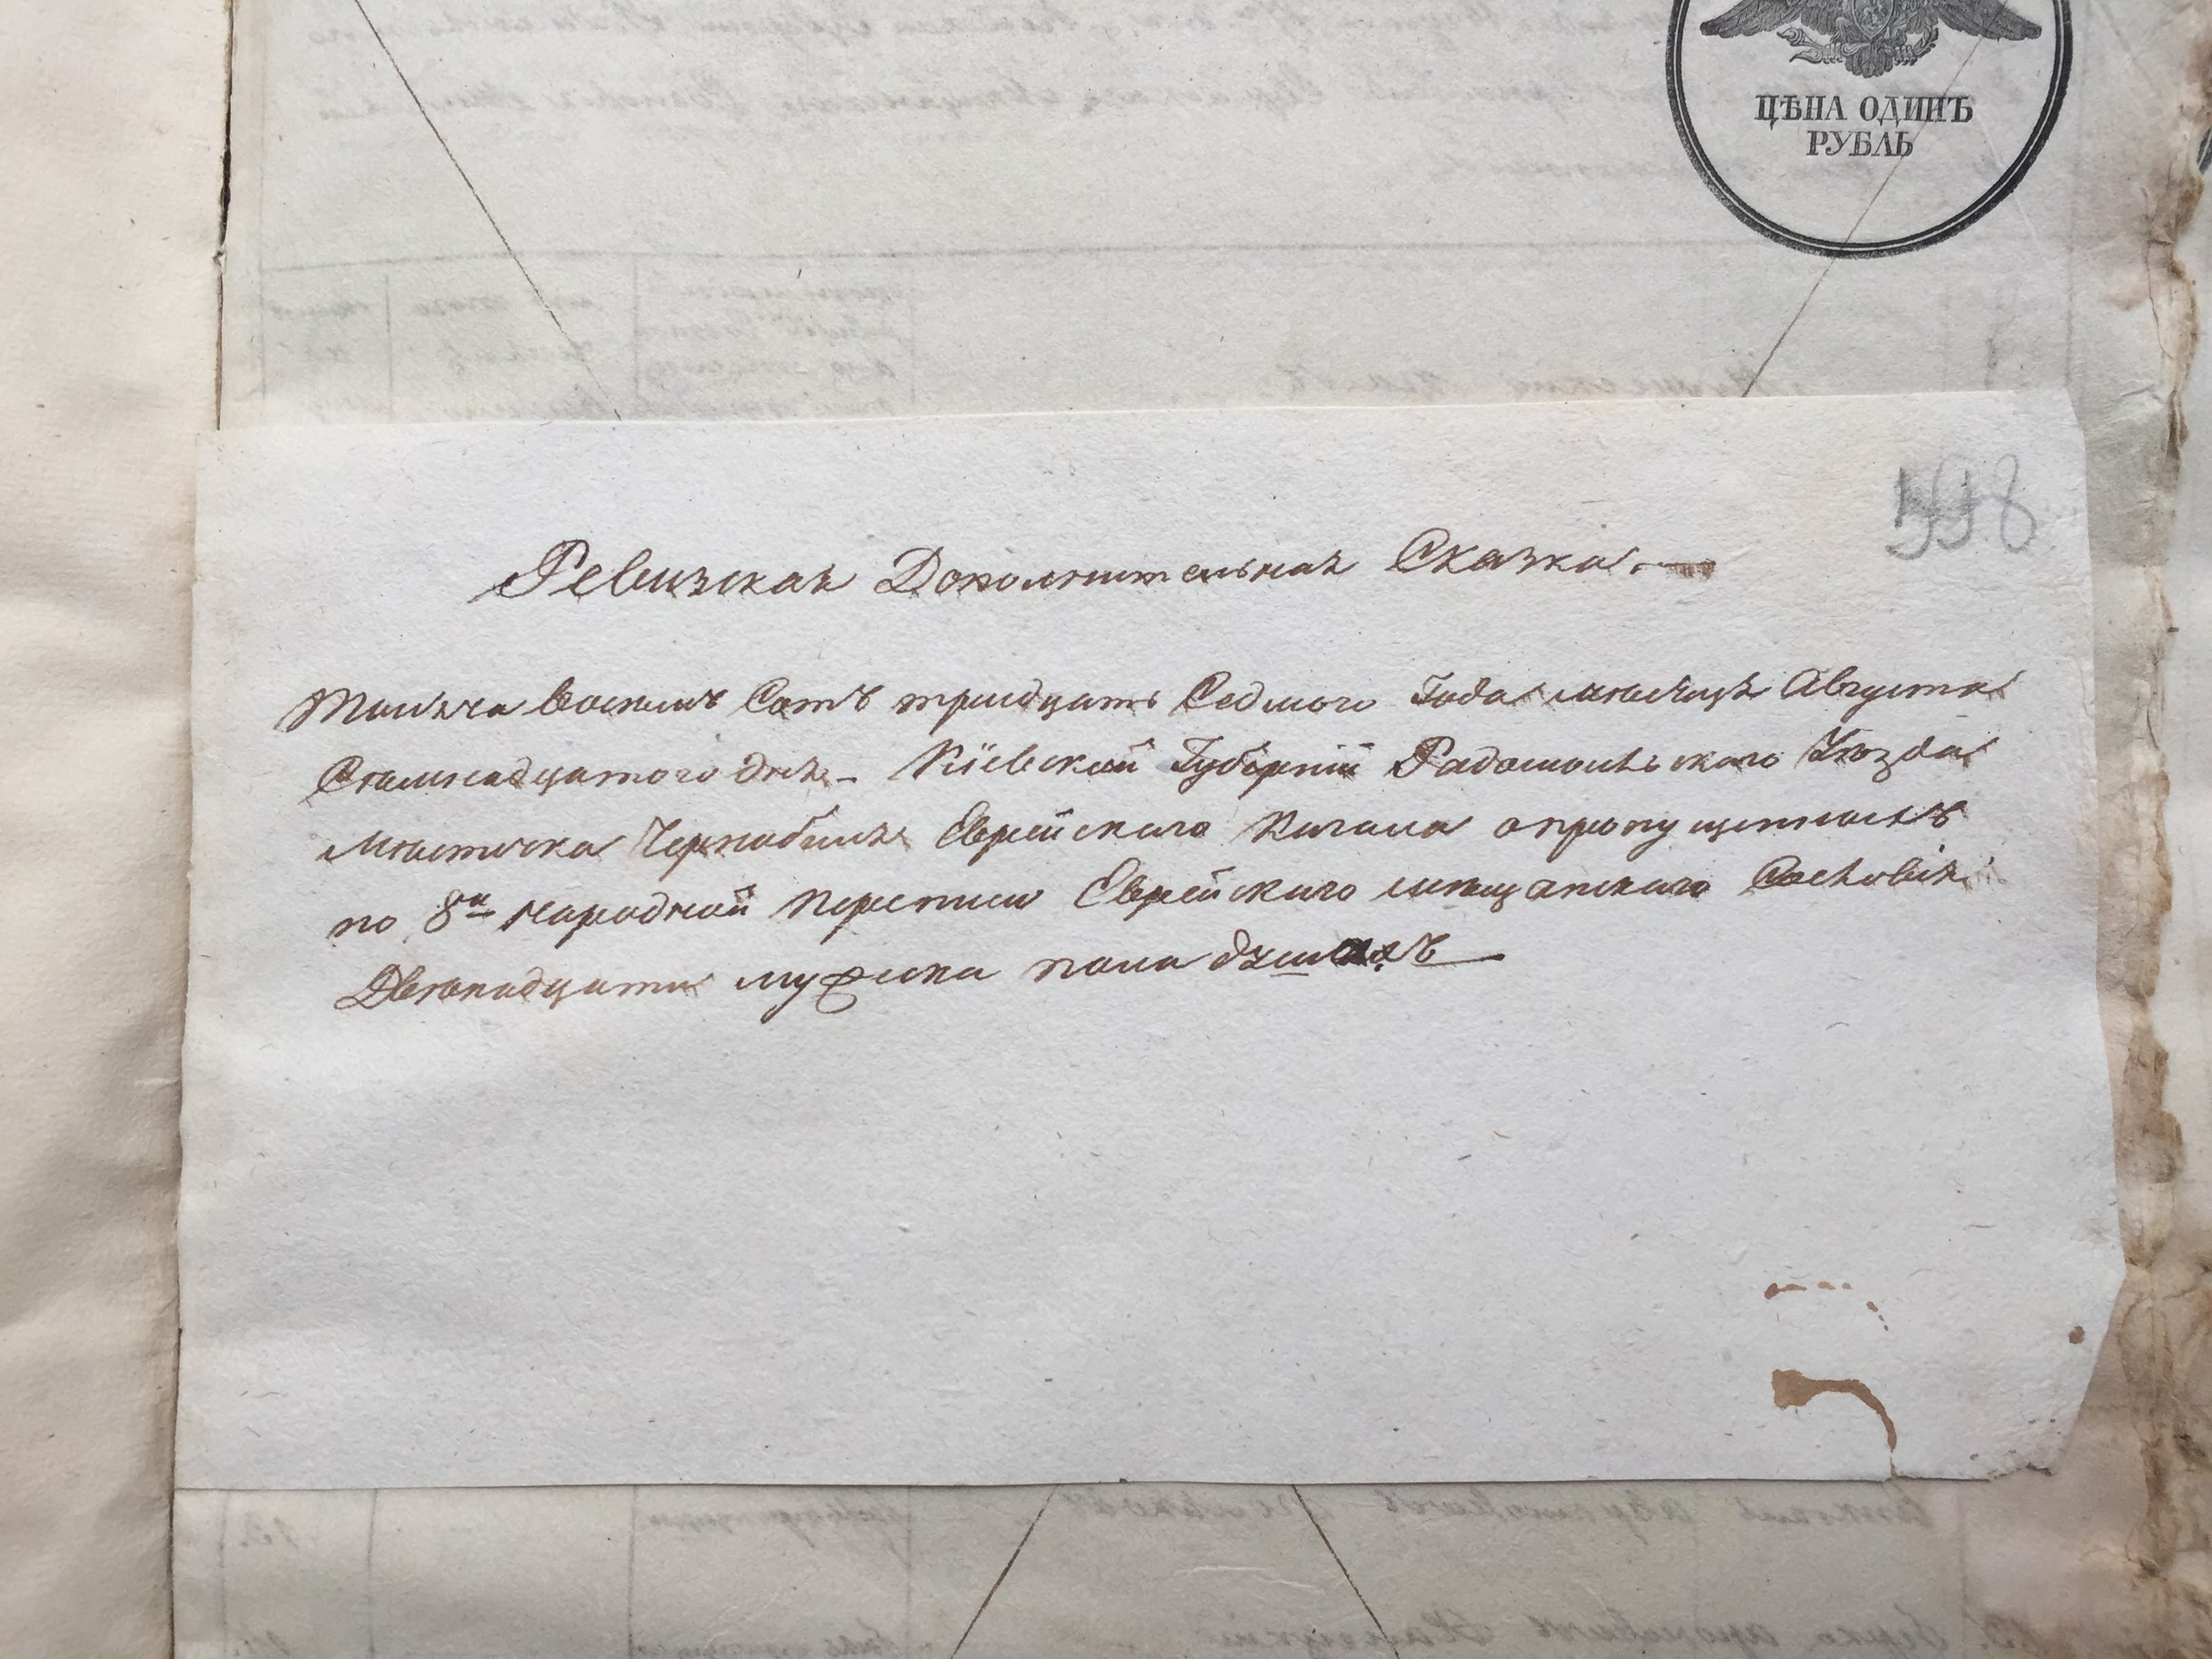 ЦѢНА ОДИНЪ
РУБЛЬ
598
Ревизская Дополнительная Сказка.
Тысяча восемь Сотъ тридцать Седмого Года мѣсяца Августа
Семнадцатого дня - Кіевской Губерніи Радомысльского Уѣзда
Мѣстечка Чернобыля Еврейского Кагала опропущенныхъ
по 8й народной переписи Еврейского мѣщанского Сословія
Двѣнадцати мужска пола душахъ